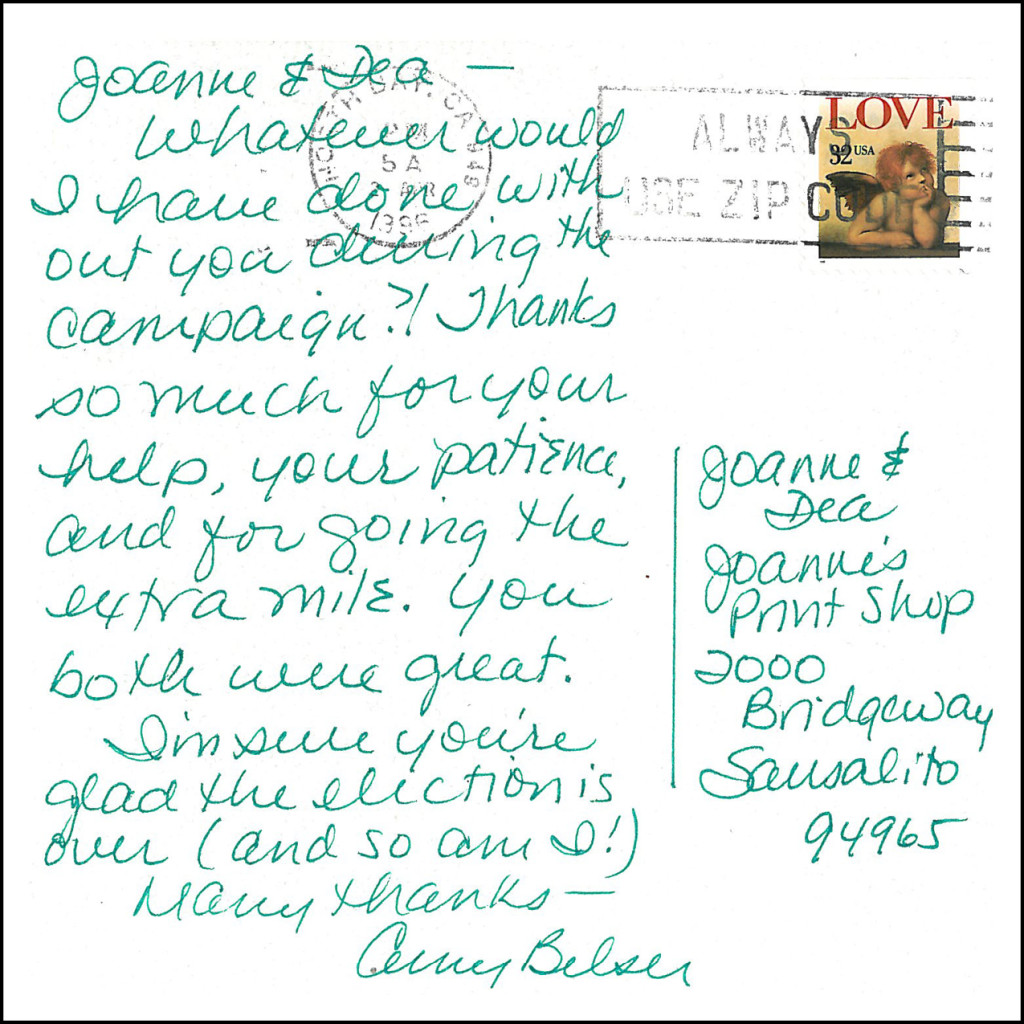 Joanne & Dea —
Whatever would
I have done with
out you during the
campaign?! Thanks
so much for your
help, your patience,
and for going the
extra mile. You
both were great.
I'm sure you're
glad the election is
over (and so am I!)
Many thanks —
Amy Belser
NORTH BAY, CA 949
PM
5 A
1996
ALWAYS
USE ZIP CODE
LOVE
32 USA
Joanne &
Dea
Joanne's
Print Shop
2000
Bridgeway
Sausalito
94965